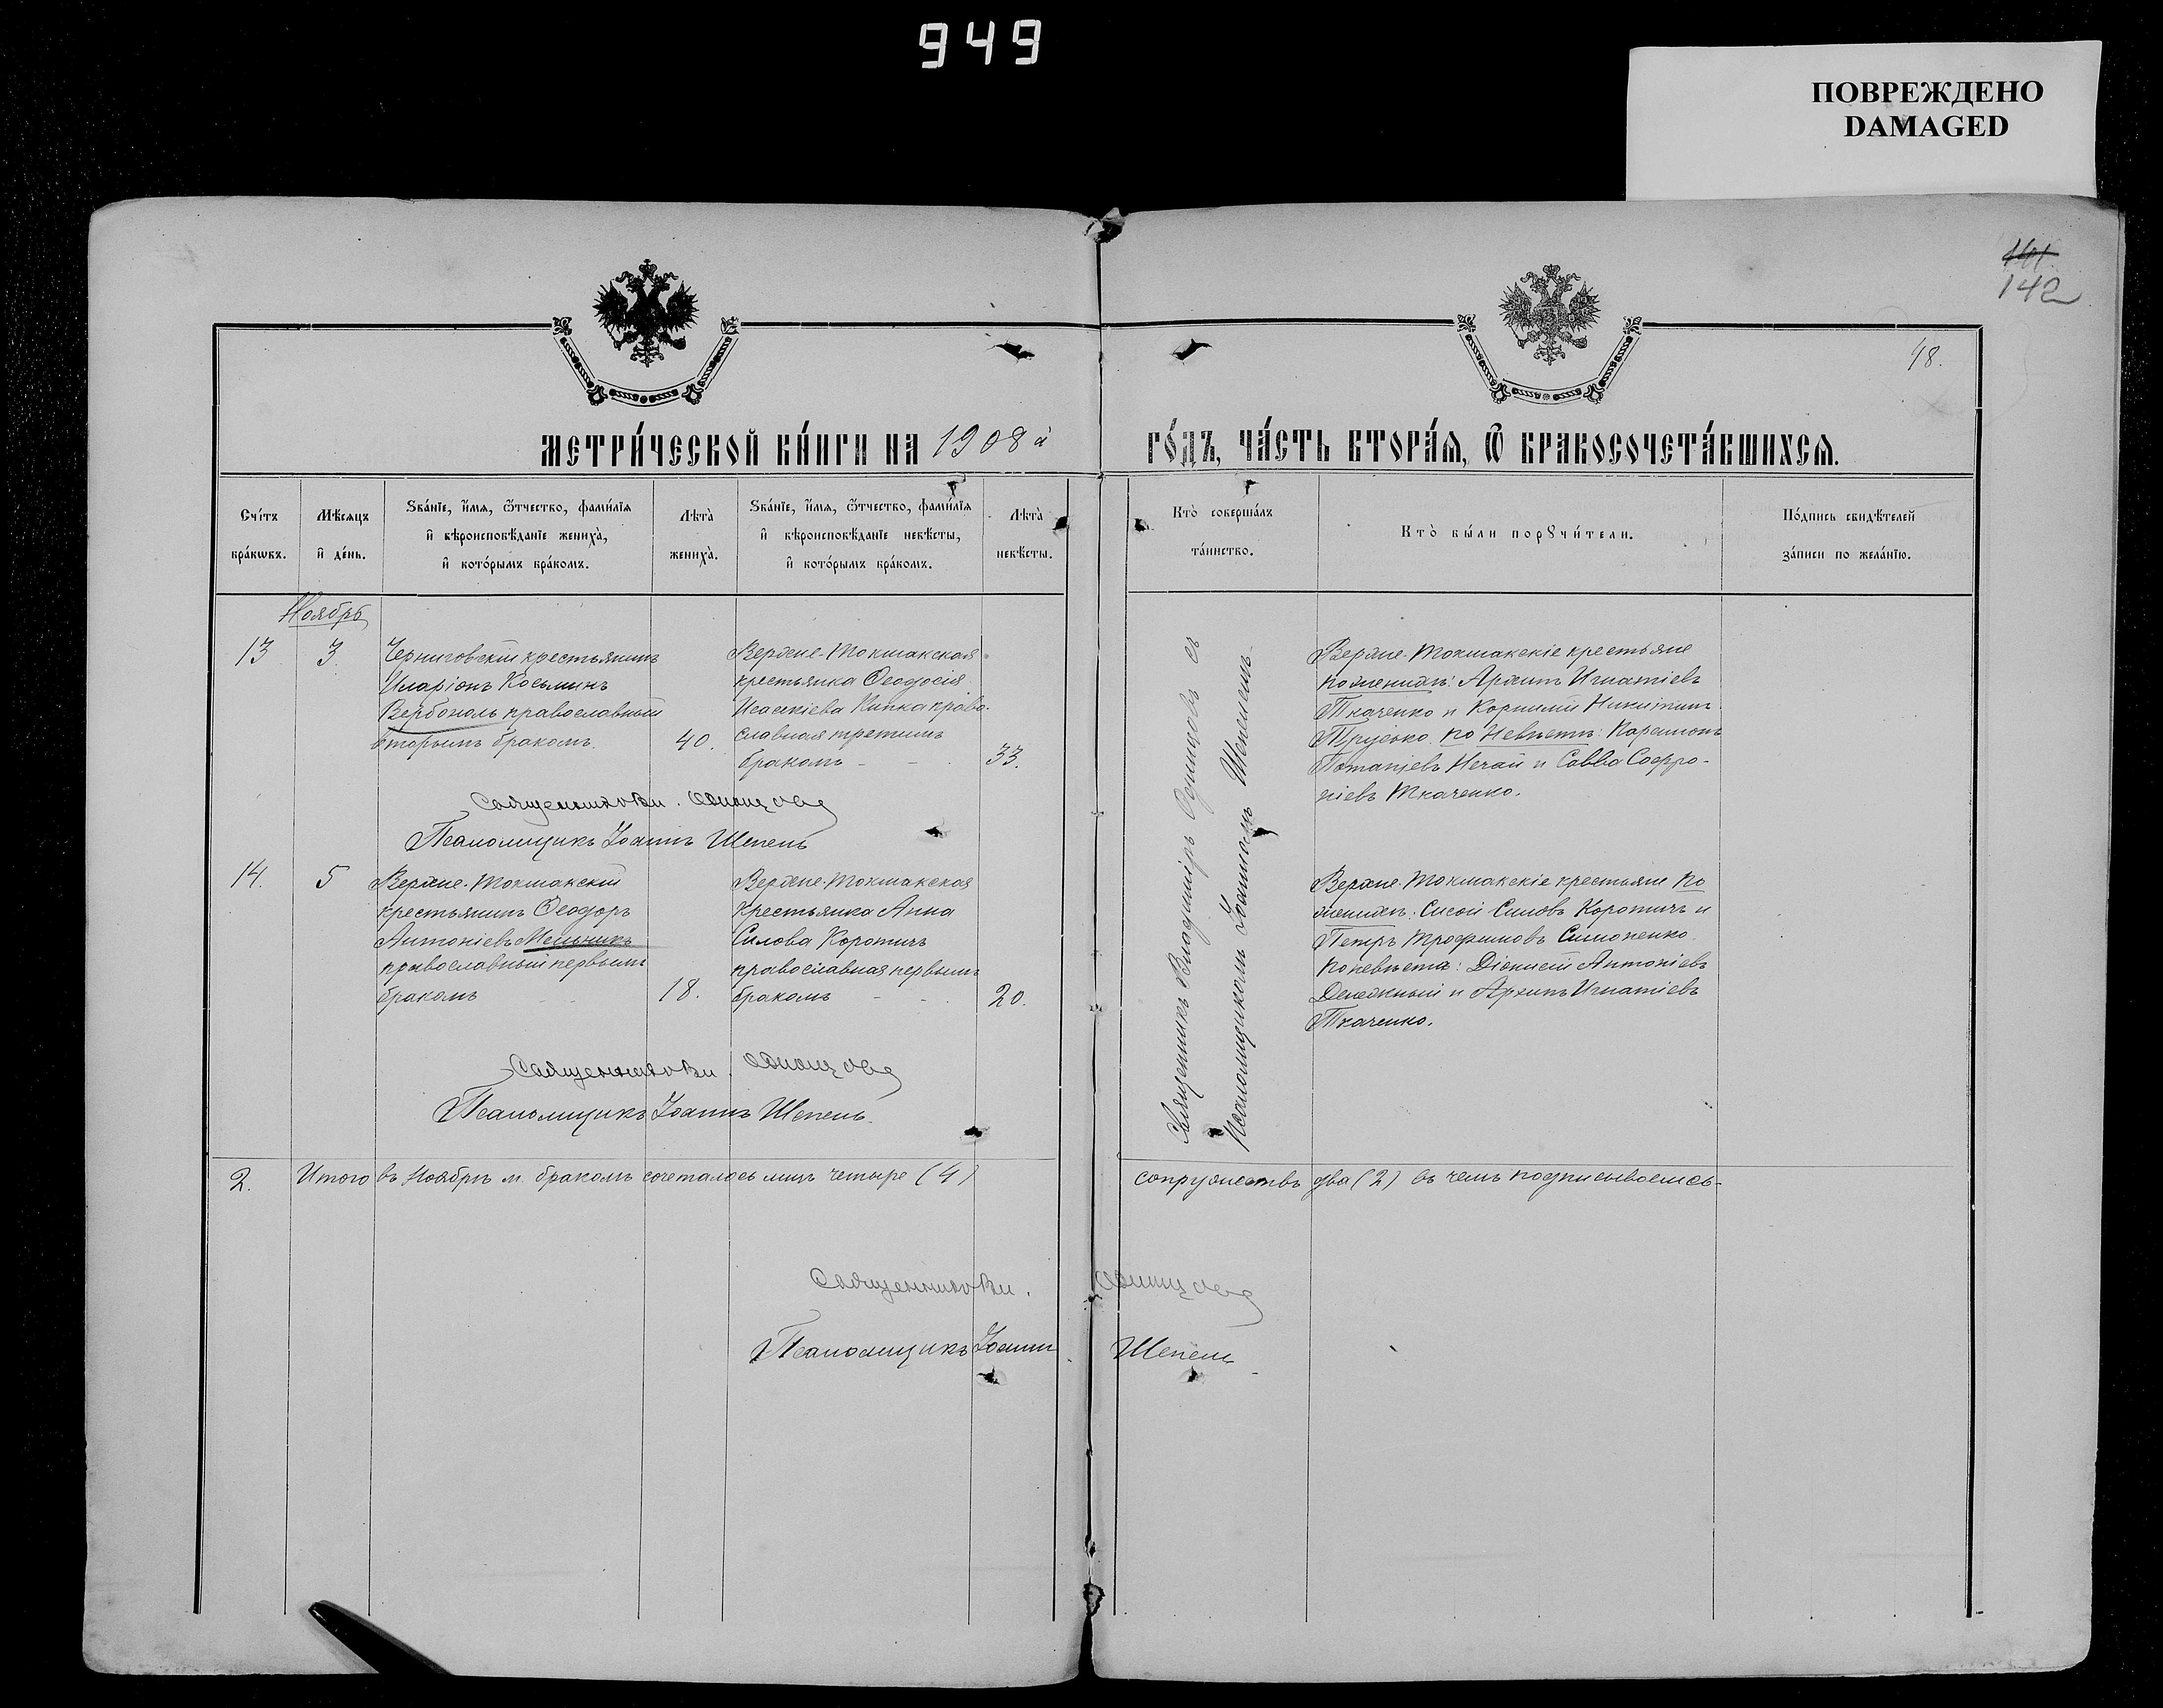 949
ПОВРЕЖДЕНО
DAMAGED
141.
142
48.
МЕТРИ́ЧЕСКОЙ КНИ́ГИ НА 1908 й
ГО́ДЪ, ЧА́СТЬ ВТОРА́Я, Ѿ БРАКОСОЧЕТА́ВШИХСЯ.
Сче́тъ бра́кωвъ.
Мѣ́сяцъ и де́нь.
Ѕва́нїе, и́мя, ѻ́тчество, фами́лїя
и вѣроисповѣ́данїе жениха̀,
и кото́рымъ бра́комъ.
Лѣта̀ жениха̀.
Ѕва́нїе, и́мя, ѻ́тчество, фами́лїя
и вѣроисповѣ́данїе невѣ́сты,
и кото́рымъ бра́комъ.
Лѣта̀ невѣ́сты.
Кто̀ соверша́лъ
та́инство.
Кто̀ бы́ли порꙋчи́тели.
По́дпись свидѣ́телей
за́писи по жела́нїю.
Ноябрь
13
3
Черниговскій крестьянинъ
Иларіонъ Косьминъ
православный
вторымъ бракомъ.
40.
Верхне-Токмакская
крестьянка Ѳеодосія
Исаакіева Кипка право-
славная третьимъ
бракомъ - -
33.
Священникъ Владиміръ Одинцовъ съ
Псаломщикомъ Іоанномъ Шепелемъ.
Верхне-Токмакскіе крестьяне
по женихѣ: Архипъ Игнатіевъ
Ткаченко и Корнилій Никитинъ
Трусько. по Невѣстѣ: Харитонъ
Потапіевъ Нечай и Савва Софро-
ніевъ Ткаченко.
Священникъ Вл. Одинцовъ
Псаломщикъ Іоаннъ Шепель
14.
5
Верхне-Токмакскій
крестьянинъ Ѳеодоръ
Антоніевъ Мельникъ
православный первымъ
бракомъ
18.
Верхне-Токмакская
крестьянка Анна
Силова Коротичъ
православная первымъ
бракомъ - -
20.
Верхне-Токмакскіе крестьяне по
женихѣ: Сисой Силовъ Коротичъ и
Петръ Трофимовъ Симоненко
по невѣстѣ: Діонисій Антоніевъ
и Архипъ Игнатіевъ
Ткаченко.
Священникъ Вл. Одинцовъ
Псаломщикъ Іоаннъ Шепель.
2.
Итого въ Ноябрѣ м. бракомъ сочеталось лицъ четыре (4)
сопружествъ два (2) въ чемъ подписываемсь-
Священникъ Вл. Одинцовъ
Псаломщикъ Іоаннъ Шепель